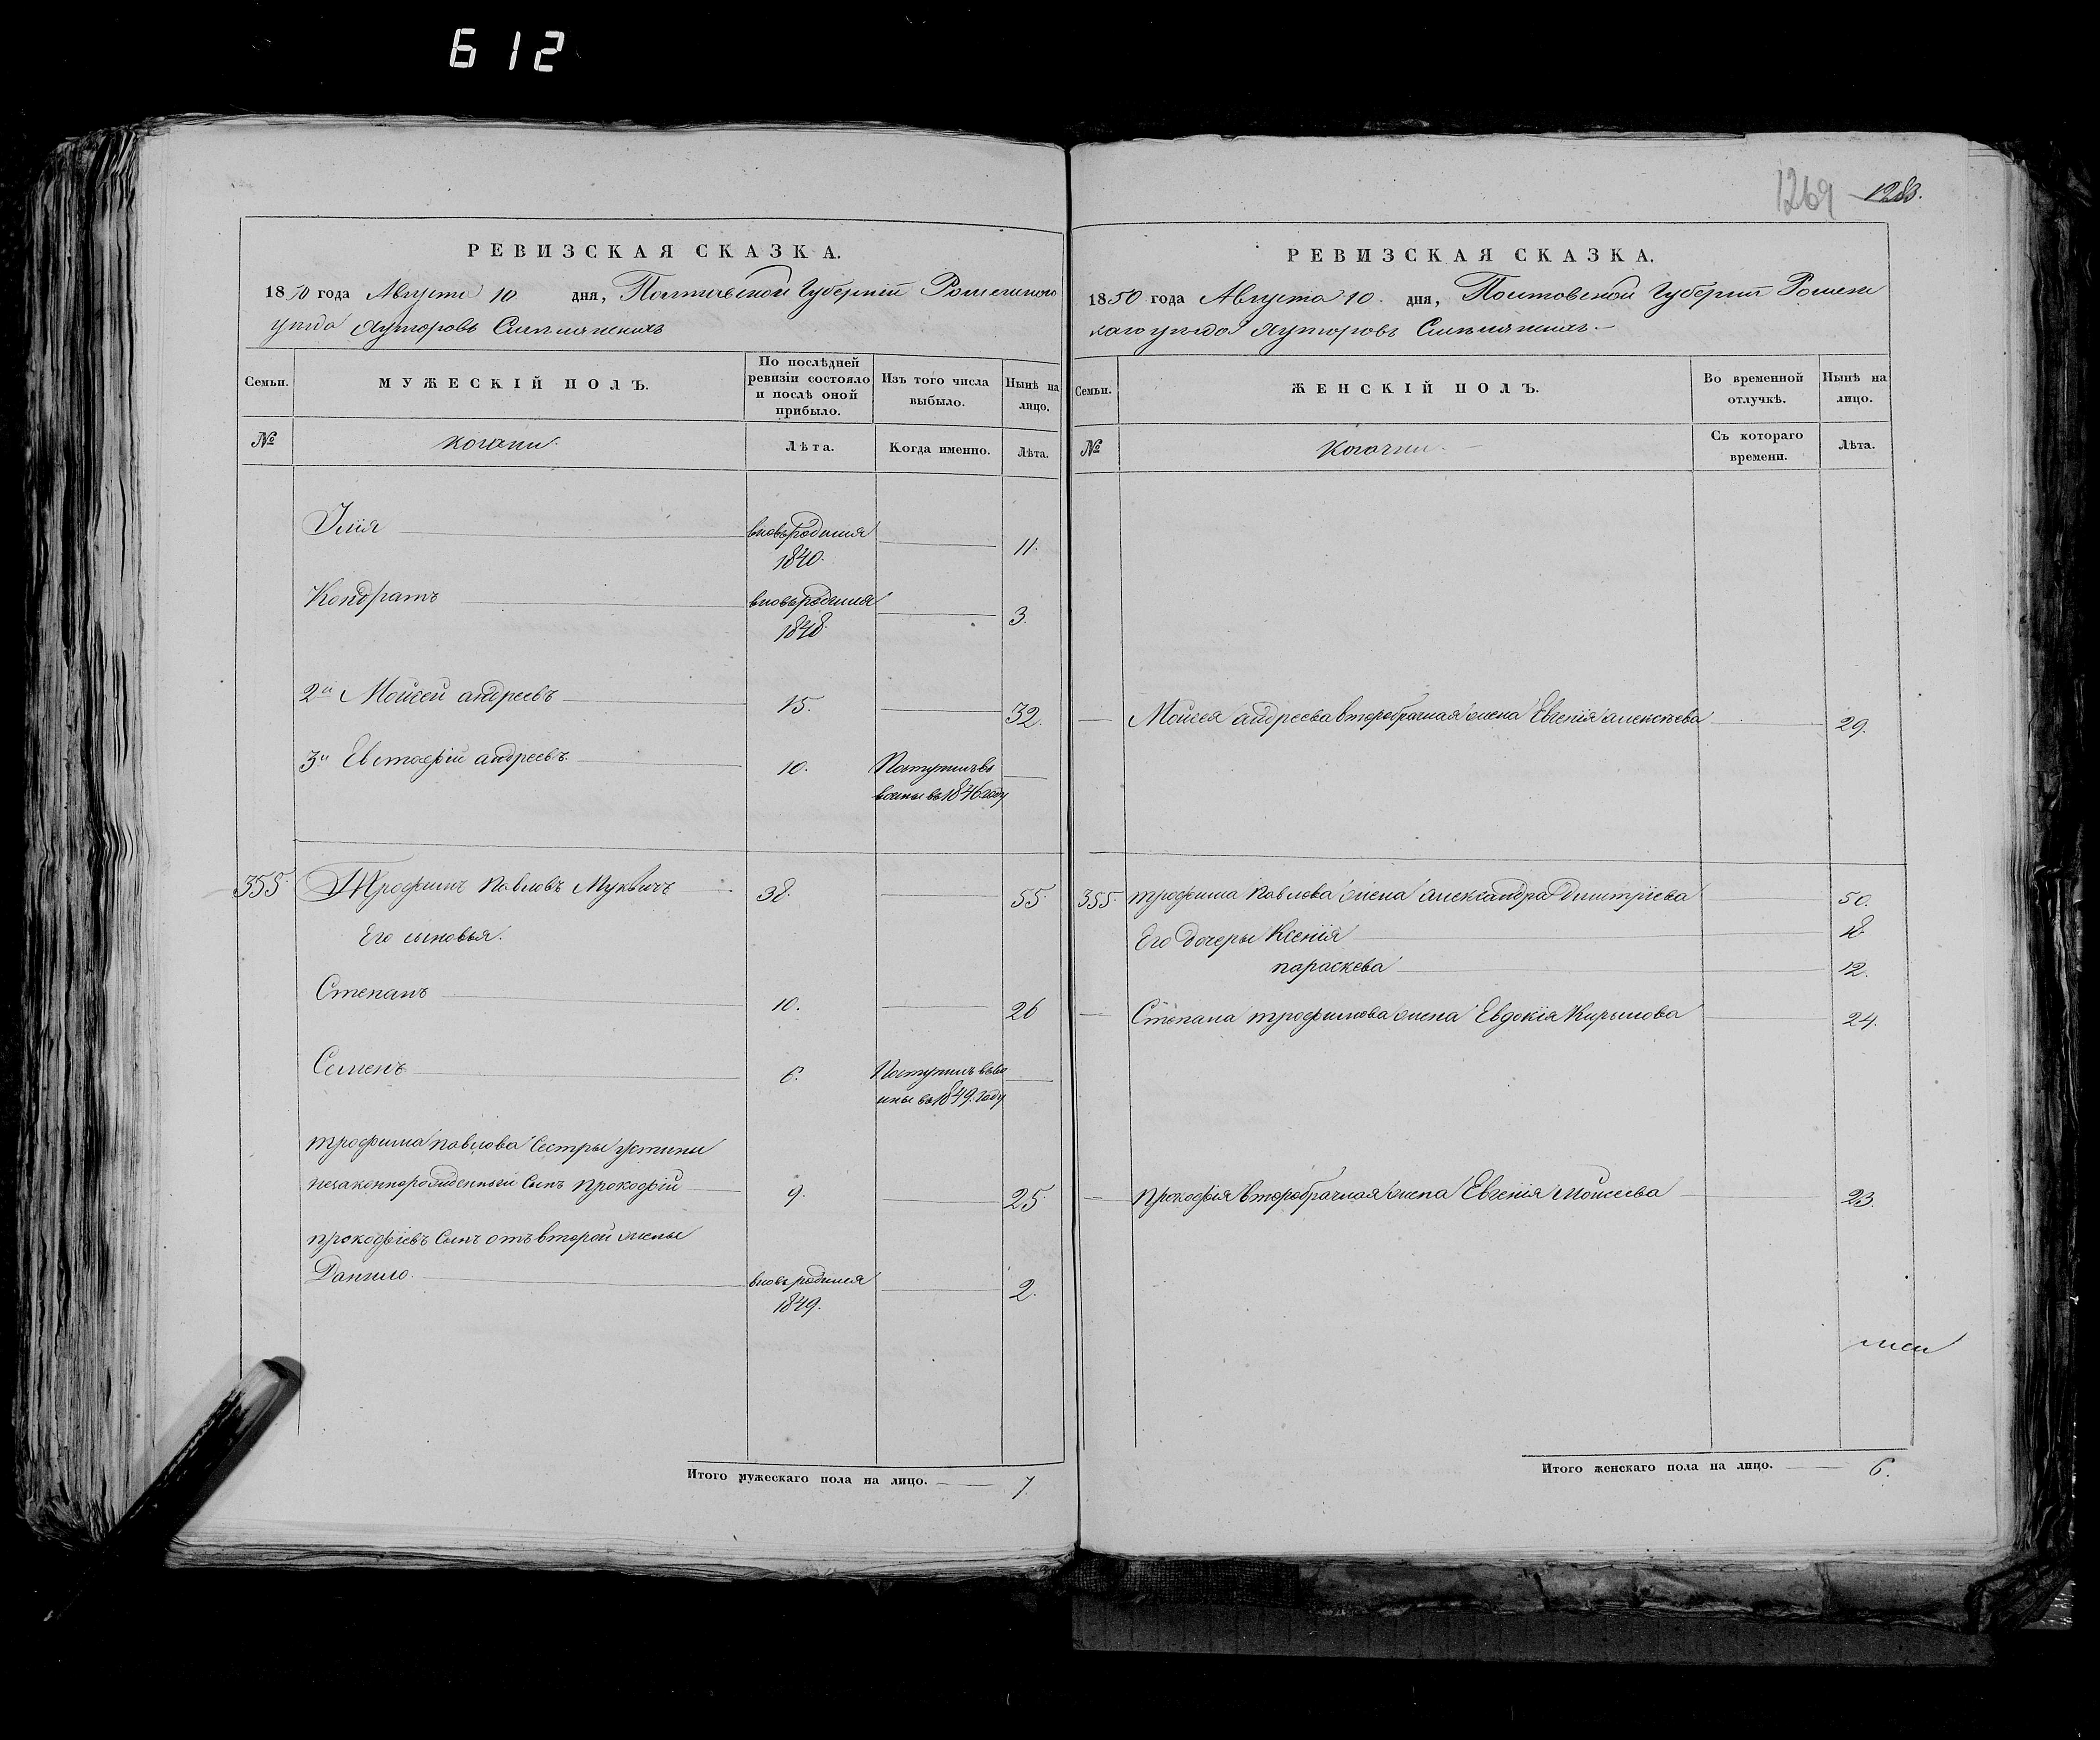 612
1269 1283.
РЕВИЗСКАЯ СКАЗКА.
1850 года Августа 10 дня, Полтавской Губернии Роменского
уезда Хуторовъ
Семьи.
МУЖЕСКІЙ ПОЛЪ.
По послѣдней ревизіи состояло и послѣ оной прибыло.
Изъ того числа выбыло.
Нынѣ на лицо.
№
козаки.
Лѣта.
Когда именно.
Лѣта.
Илія вновьродился 1840. 11.
Кондратъ вновьродился 1848. 3.
2й Мойсей андреевъ 15. 32.
3й Евстафій андреевъ 10. Поступилъ въ воины въ 1846 году
355 Трофимъ Павловъ 38. 55.
Его сыновья.
Степанъ 10. 26
Семенъ 6. Поступилъ въ воины въ 1849. году
трофима павлова Сестры устины
незаконнорожденный Сынъ прокофій 9. 25.
прокофіевъ Сынъ отъ второй жены
Данило. вновь родился 1849. 2.
Итого мужескаго пола на лицо. 7.
РЕВИЗСКАЯ СКАЗКА.
1850 года Августа 10. дня, Полтавской Губерніи Роменс
каго уезда Хуторовъ
Семьи.
ЖЕНСКІЙ ПОЛЪ.
Во временной отлучкѣ.
Нынѣ на лицо.
№
Козачки
Съ котораго времени.
Лѣта.
Мойсея андреева второбрачная жена Евгенія алексѣева 29.
355. трофима Павлова жена александра Дмитріева 50.
Его дочеры Ксенія 18
параскева 12.
Степана трофимова жена Евдокія Кирылова 24.
прокофія второбрачная жена Евгенія Мойсеева 23.
Итого женскаго пола на лицо. 6.